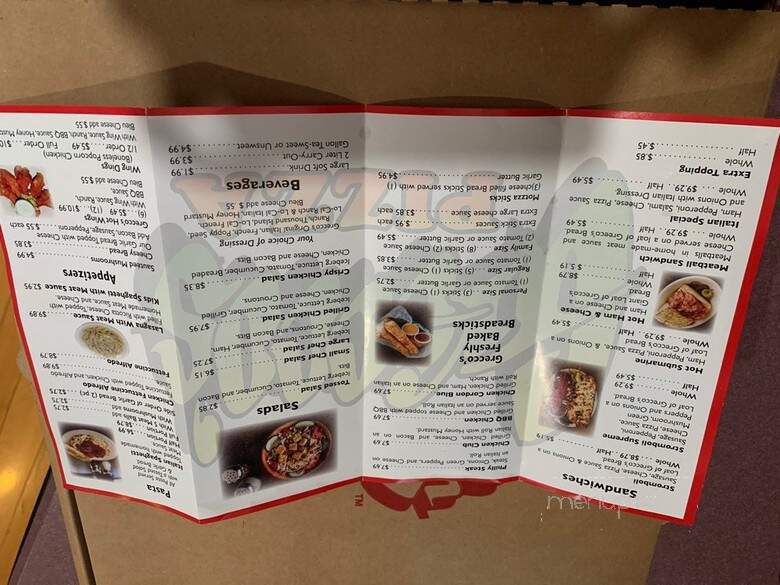 Sandwiches
Stromboli
Sausage, Cheese, Pizza Sauce on a
Loaf of Grecco's Bread
Whole . . $8.79 . . Half . . $5.79
Stromboli Supreme
Cheese, Sausage, Pepperoni,
Mushroom, Pizza Sauce,
Peppers and Onions on a
Loaf of Grecco's Bread
Whole . . . . . . . . . . $9.29
Half . . . . . . . . . . . $5.49
Hot Submarine
Ham, Pepperoni, Cheese, Pizza Sauce, & Onions on a
Loaf of Grecco's Bread
Whole . . . $9.29 . . Half . . . $5.49
Hot Ham & Cheese
Ham and Cheese on a
Loaf of Grecco's
Bread
Whole . . . . . . . . . $8.79
Half . . . . . . . . . . $5.19
Meatball Sandwich
Meatballs in home-made meat sauce and
Cheese served on a loaf of Grecco's Bread
Whole . . . $9.29 . . Half . . . $5.49
Italian Special
Ham, Pepperoni, Salami, Cheese, Pizza Sauce
and Onions with Italian Dressing
Whole . . . $9.29 . . Half . . $5.49
Extra Topping
Whole . . . . . . . . . . . . $.85
Half . . . . . . . . . . . . . $.45
Philly Steak . . . . . . . . . . . . . . $7.69
Steak, Onions, Cheese, and Peppers, Green on
an Italian Roll
Chicken Club . . . . . . . . . . . . . . $7.69
Grilled Chicken, Ham, and Bacon served on
an Italian Roll with Honey Mustard.
BBQ Chicken . . . . . . . . . . . . . . $7.69
Grilled Chicken and Cheese topped with BBQ
Sauce served on an Italian Roll
Chicken Cordon Blue . . . . . . . . $7.69
Grilled Chicken, Ham, and Cheese on an Italian
Roll with Ranch
Grecco's
Freshly
Baked
Breadsticks
Personal Size . . (3) Sticks (1) Cheese Sauce
(1) Tomato Sauce or Garlic Butter . . . . $2.75
Regular Size . . . (5) Sticks (1) Cheese
(1) Tomato Sauce or Garlic Butter . . $3.85
Family Size . . . (8) Sticks (2) Cheese
(2) Tomato Sauce or Garlic Butter . . $5.49
Extra Cheese Sauce . . . . . . . . $.95 each
Extra Large Cheese Sauce . . . $3.85 each
Mozza sticks
(3)cheese filled Breadsticks served with (1)
Garlic Butter . . . . . . . . . . . . . $4.95
Salads
Tossed Salad . . . . . . . . . . . . . . $2.85
Iceberg Lettuce, Tomato, Cucumber and Bacon
Bits
Small Chef Salad . . . . . . . . . . . $6.15
Large Chef Salad . . . . . . . . . . . $7.25
Iceberg Lettuce, Tomato, Cucumber, Ham,
Cheese, Croutons, and Bacon Bits
Grilled Chicken Salad . . . . . . . . $7.95
Iceberg Lettuce, Tomato, Cucumber, Grilled
Chicken, Cheese and Croutons
Crispy Chicken Salad . . . . . . . . $8.35
Iceberg Lettuce, Tomato, Cucumber, Breaded
Chicken, Cheese, Croutons, and Bacon
Bits
Your Choice of Dressing
Grecco Original Italian, Honey French, Poppy Seed,
Ranch, Thousand Island, Lo-Cal French,
Lo-Cal Ranch, Lo-Cal Italian, Honey Mustard
Bleu Cheese add $.55
Beverages
Large Soft Drink . . . . . . . . . . . . $1.99
2 liter Carry-Out . . . . . . . . . . . . $3.99
Gallon Tea-Sweet or Unsweet . . . . $4.99
Pasta
Italian Spaghetti
Side Order of Garlic Bread (2 pc) . . . $2.75
Chicken Fettuccine Alfredo . . . . $9.89
Fettuccine Alfredo . . . . . . . . . . $8.79
Lasagna with Meat Sauce . . . . . $9.89
Kids Spaghetti with Meat Sauce $2.95
Appetizers
Sauteed Mushrooms . . . . . . . . . $4.99
Cheesy Bread . . . . . . . . . . . . . . $3.85
Our Garlic Bread topped with Cheese
Add Bacon, Sausage, or Pepperoni . . $.55 each
Grecco's Hot Wings
(6) . . . . $5.49 (12) . . . . $10.99
With Wing Sauce, Ranch,
BBQ Sauce,
Bleu Cheese add $.55
Wing Dings
(Boneless Popcorn Chicken)
1/2 Order . . . $5.49 Full Order
With Wing Sauce, Ranch, BBQ Sauce, Honey Mustard
Bleu Cheese add $.55
TM